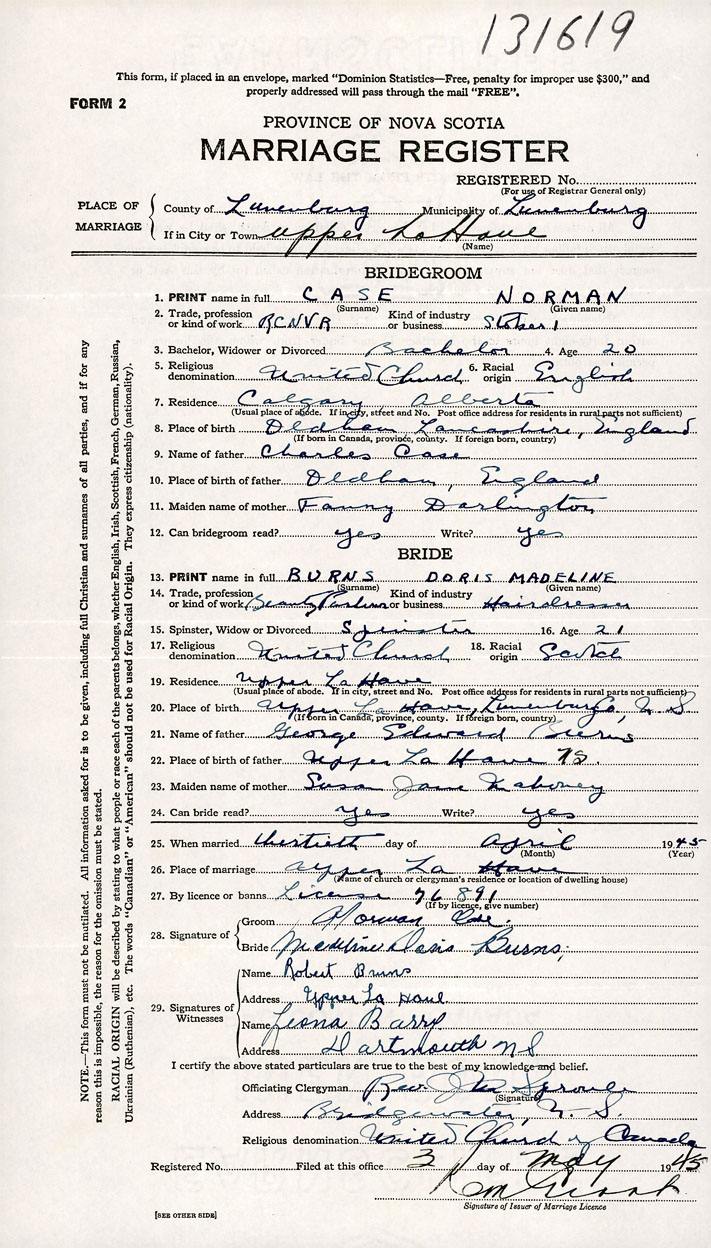 131619
This form, if placed in an envelope, marked "Dominion Statistics—Free, penalty for improper use $300," and
properly addressed will pass through the mail "FREE".
FORM 2
PROVINCE OF NOVA SCOTIA
MARRIAGE REGISTER
REGISTERED No.
(For use of Registrar General only)
PLACE OF MARRIAGE
County of Lunenburg Municipality of Lunenburg
If in City or Town Upper LaHave
(Name)
BRIDEGROOM
1. PRINT name in full CASE NORMAN
(Surname) (Given name)
2. Trade, profession or kind of work RCNVR Kind of industry or business Stoker 1
3. Bachelor, Widower or Divorced Bachelor 4. Age 20
5. Religious denomination United Church 6. Racial origin English
7. Residence Calgary Alberta
(Usual place of abode. If in city, street and No. Post office address for residents in rural parts not sufficient)
8. Place of birth Oldham Lancashire, England
(If born in Canada, province, county. If foreign born, country)
9. Name of father Charles Case
10. Place of birth of father Oldham, England
11. Maiden name of mother Fanny Darlington
12. Can bridegroom read? yes Write? yes
BRIDE
13. PRINT name in full BURNS DORIS MADELINE
(Surname) (Given name)
14. Trade, profession or kind of work Beauty Parlour Kind of industry or business Hairdresser
15. Spinster, Widow or Divorced Spinster 16. Age 21
17. Religious denomination United Church 18. Racial origin Scotch
19. Residence Upper La Have
(Usual place of abode. If in city, street and No. Post office address for residents in rural parts not sufficient)
20. Place of birth Upper La Have, Lunenburg Co, N.S
(If born in Canada, province, county. If foreign born, country)
21. Name of father George Edward Burns
22. Place of birth of father Upper La Have NS.
23. Maiden name of mother Susan Jane Mahoney
24. Can bride read? yes Write? yes
25. When married thirtieth day of April 1945
(Month) (Year)
26. Place of marriage Upper La Have
(Name of church or clergyman's residence or location of dwelling house)
27. By licence or banns License 76891
(If by licence, give number)
28. Signature of
Groom Norman Case.
Bride Madeline Doris Burns,
29. Signatures of Witnesses
Name Robert Burns
Address Upper La Have
Name Leona Barry
Address Dartmouth NS
I certify the above stated particulars are true to the best of my knowledge and belief.
Officiating Clergyman Rev. Sproule
(Signature)
Address Bridgewater, N.S.
Religious denomination United Church of Canada
Registered No. Filed at this office 3 day of May 1945
Signature of Issuer of Marriage Licence
[SEE OTHER SIDE]
NOTE.—This form must not be mutilated. All information asked for is to be given, including full Christian and surnames of all parties, and if for any
reason this is impossible, the reason for the omission must be stated.
RACIAL ORIGIN will be described by stating to what people or race each of the parents belongs, whether English, Irish, Scottish, French, German, Russian,
Ukrainian (Ruthenian), etc. The words "Canadian" or "American" should not be used for Racial Origin. They express citizenship (nationality).